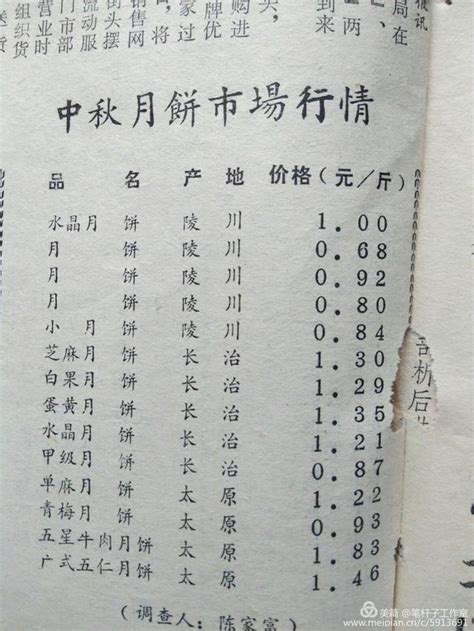 报讯
局在
两
到来
头，
购进
牌优
家过
，将
销售网
街头摆
流动服
门市部
营业时
组织货
中秋月餅市場行情
品名 产地 价格(元/斤)
水晶月饼 陵川 1.00
月饼 陵川 0.68
月饼 陵川 0.92
月饼 陵川 0.80
小月饼 陵川 0.84
芝麻月饼 长治 1.30
白果月饼 长治 1.29
蛋黄月饼 长治 1.35
水晶月饼 长治 1.21
甲级月饼 长治 0.87
单麻月饼 太原 1.22
青梅月饼 太原 0.93
五星牛肉月饼 太原 1.83
广式五仁月饼 太原 1.46
(调查人：陈家富)
剖析后
美篇 @笔杆子工作室
www.meipian.cn/c/5913691